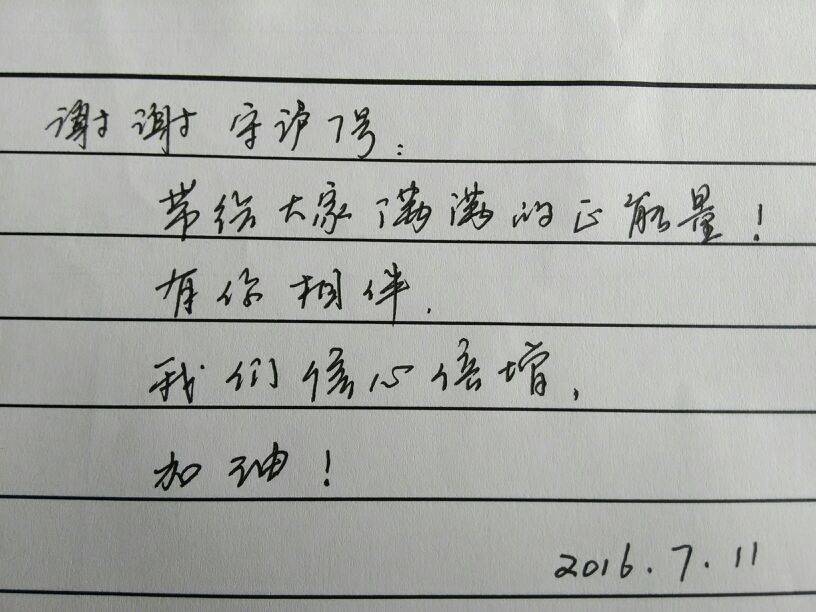 谢谢守护1号：
带给大家满满的正能量！
有你相伴.
我们信心倍增,
加油！
2016.7.11